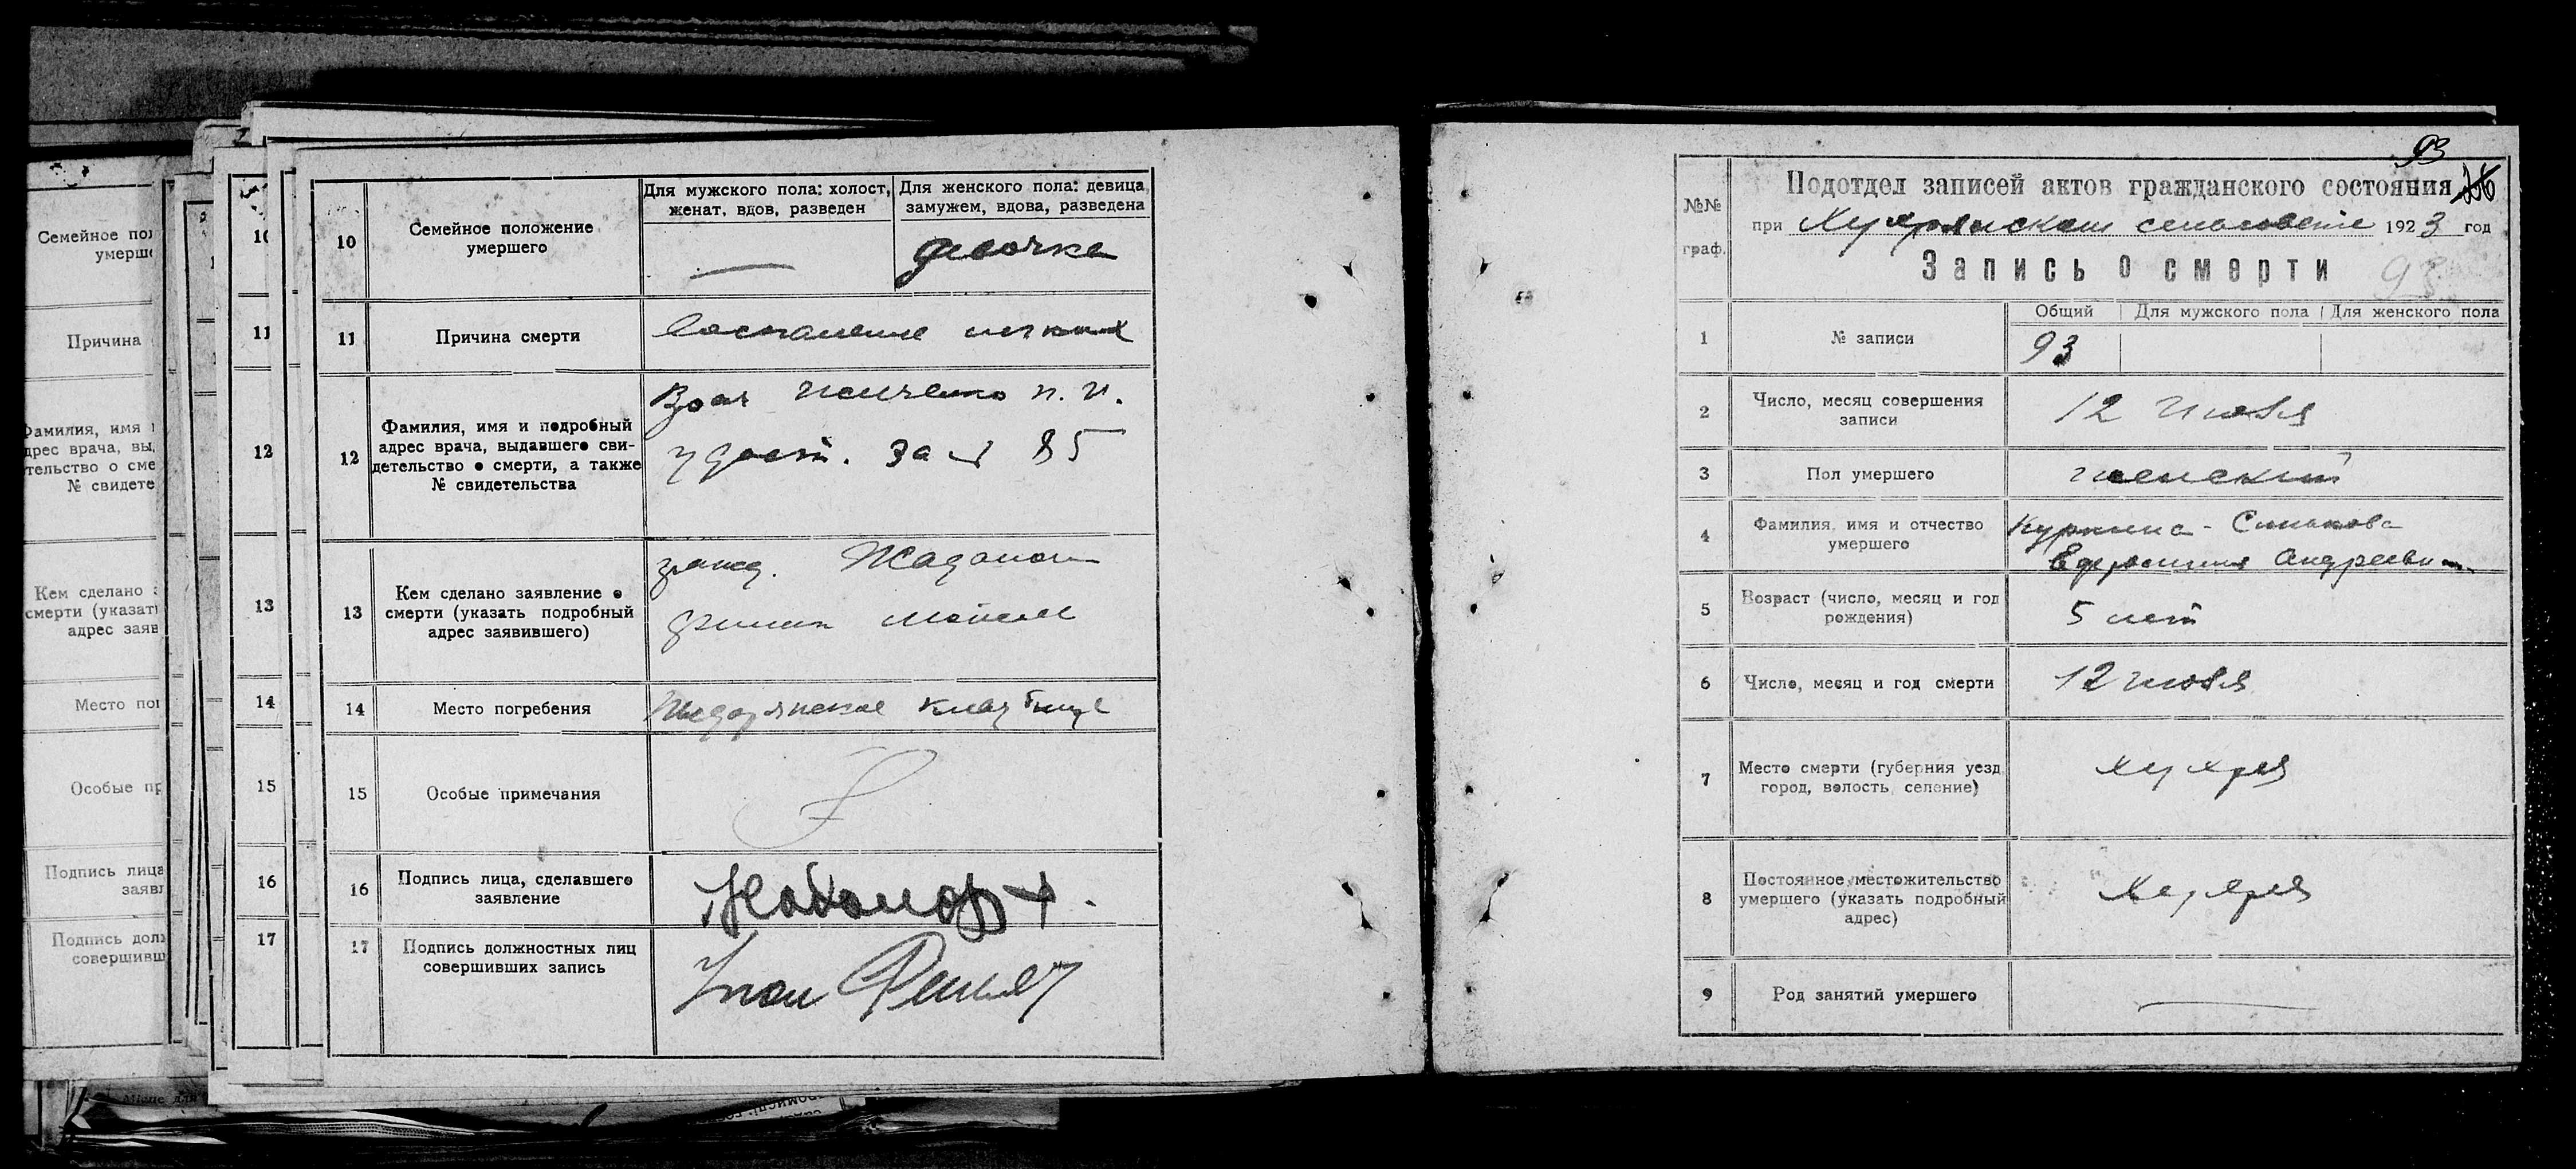 Семейное пол
умерше
Причина
Фамилия, имя и
дрес врача, вы
тельство о сме
№ свидете
Кем сделано з
смерти (указат
адрес заяв
Место пог
Особые пр
Подпись лица
заявл
Подпись долж
совершивш
11
12
13
14
15
16
17
10
Семейное положение
умершего
Для мужского пола: холост,
женат, вдов, разведен
Для женского пола: девица,
замужем, вдова, разведена
девочка
11
Причина смерти
Воспаление легких
12
Фамилия, имя и подробный
адрес врача, выдавшего сви-
детельство о смерти, а также
№ свидетельства
Врач п. и.
удост. за № 85
13
Кем сделано заявление о
смерти (указать подробный
адрес заявившего)
гражд.
14
Место погребения
кладбище
15
Особые примечания
16
Подпись лица, сделавшего
заявление
17
Подпись должностных лиц
совершивших запись
93
№№
граф.
Подотдел записей актов гражданского состояния
при Хухрянском сельсовете 1923 год
Запись о смерти
93
Общий
Для мужского пола
Для женского пола
1
№ записи
93
2
Число, месяц совершения
записи
12 Июля
3
Пол умершего
женский
4
Фамилия, имя и отчество
умершего
Андреевна
5
Возраст (число, месяц и год
рождения)
5 лет
6
Число, месяц и год смерти
12 июля
7
Место смерти (губерния уезд,
город, волость, селение)
Хухря
8
Постоянное местожительство
умершего (указать подробный
адрес)
Хухря
9
Род занятий умершего